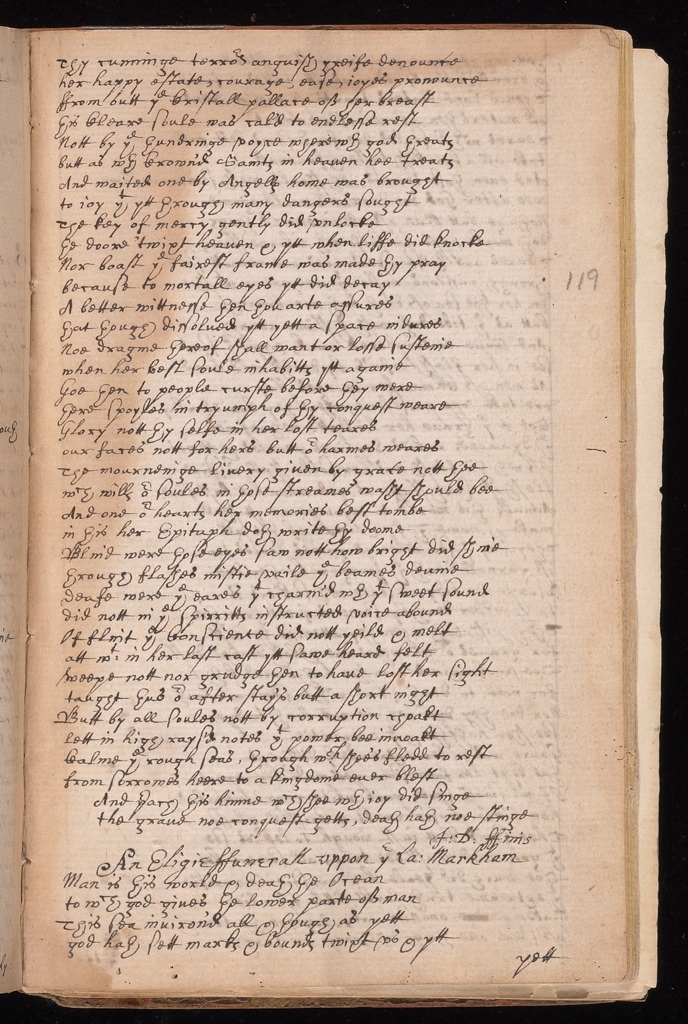 Thy cunninge terrors anguish greife denounce
her happy estate, courage, ease, ioyes pronounce
ffrom butt ye Cristall pallace off her breast
his cleare soule was cal'd to endlesse rest
Nott by ye thundringe voyce wherewth god threats
butt as wth Crownd Saints in heauen hee treats
And waited one by Angells home was brought
to ioy yt ytt through many dangers sought
The key of mercy gently did vnlocke
the doore twixt heauen & ytt when liffe did knocke
Nor boast ye fairest frame was made thy pray
because to mortall eyes ytt did decay
A better wittnesse then thou arte assures
that though dissolued ytt yett a space indures
Noe dragme thereof shall want or losse susteine
when her best soule inhabitts ytt againe
Goe then to people curste before they were
there spoyles in tryumph of thy conquest weare
Glory nott thy selfe in her lost teares
our faces nott for hers butt or harmes weares
The mourneinge liuery giuen by grace nott thee
wch wills or soules in those streames washt should bee
And one or hearts her memories best tombe
in this her Epitaph doth write thy doome
Blind were those eyes saw nott how bright did shine
through flashes mistie vaile ye beames deuine
Deafe were ye eares yt charm'd wth yt sweet sound
did nott in ye spirritts instructed voice abound
Of flint ye Conscience did nott yeild & melt
att wt in her last cast ytt sawe heard felt
weepe nott nor grudge then to haue lost her sight
taught thus or after stays butt a short night
Butt by all soules nott by corruption choakt
lett in high rays'd notes yt power bee invoakt
Calme ye rough seas, through wch shees fledd to rest
from sorrowes heere to a kingdome euer blest
And teach this himne wch shee wth ioy did singe
the graue noe conquest getts, death hath noe stinge
J: D: ffinis
An Eligie ffunerall vppon ye La: Markham
Man is this world & death the Ocean
to wch god giues the lower parte off man
This sea inuirons all & though as yett
god hath sett marks & bounds twixt vs & ytt
yett
119